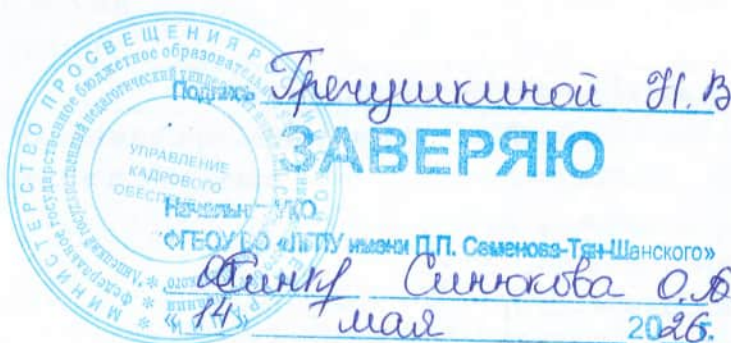 МИНИСТЕРСТВО ПРОСВЕЩЕНИЯ
Федеральное государственное бюджетное образовательное
Липецкий государственный педагогический
УПРАВЛЕНИЕ
КАДРОВОГО
Подпись Гречушкиной Н.В
ЗАВЕРЯЮ
Начальник УКО
ФГБОУ ВО «ЛГПУ имени П.П. Семенова-Тян-Шанского»
Синюкова О.
«14» мая 2026г.